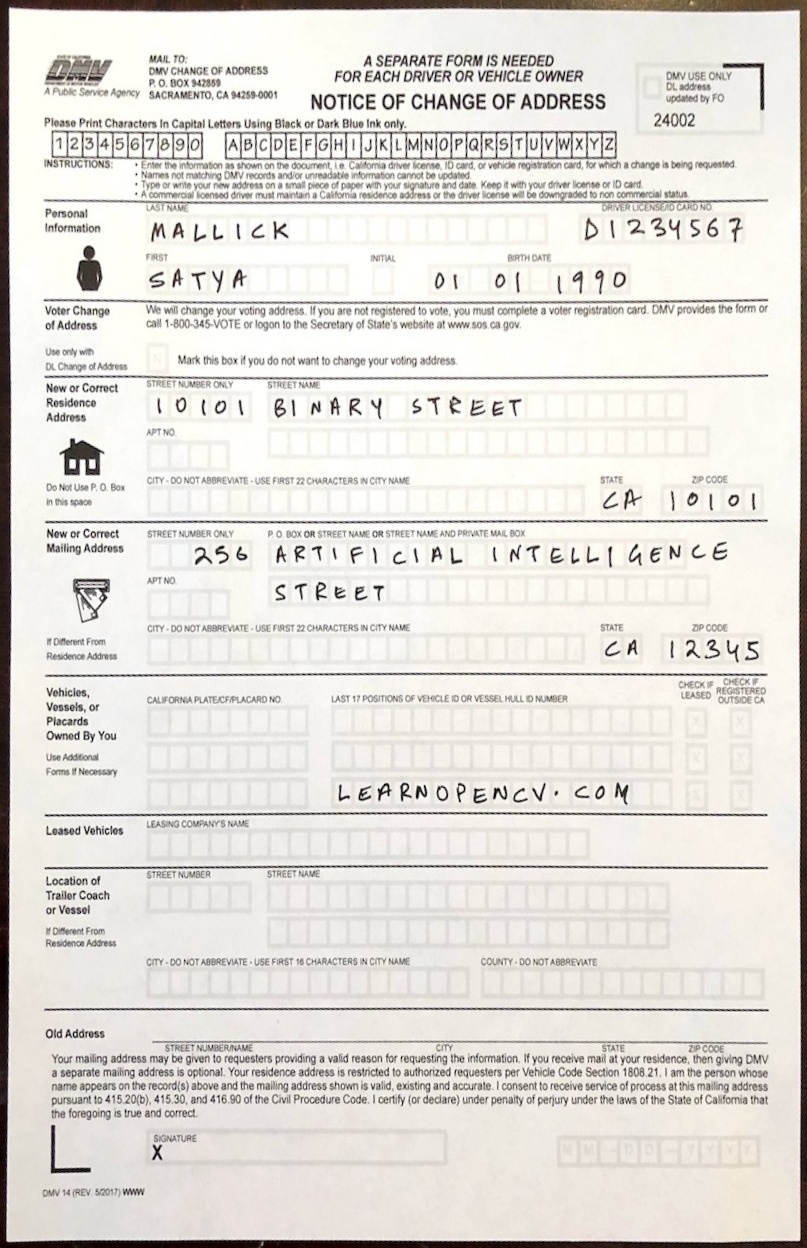 STATE OF CALIFORNIA
DMV
DEPARTMENT OF MOTOR VEHICLES
A Public Service Agency
MAIL TO:
DMV CHANGE OF ADDRESS
P. O. BOX 942859
SACRAMENTO, CA 94259-0001
A SEPARATE FORM IS NEEDED
FOR EACH DRIVER OR VEHICLE OWNER
NOTICE OF CHANGE OF ADDRESS
DMV USE ONLY
DL address
updated by FO
24002
Please Print Characters In Capital Letters Using Black or Dark Blue Ink only.
1 2 3 4 5 6 7 8 9 0 A B C D E F G H I J K L M N O P Q R S T U V W X Y Z
INSTRUCTIONS: • Enter the information as shown on the document, i.e. California driver license, ID card, or vehicle registration card, for which a change is being requested.
• Names not matching DMV records and/or unreadable information cannot be updated.
• Type or write your new address on a small piece of paper with your signature and date. Keep it with your driver license or ID card.
• A commercial licensed driver must maintain a California residence address or the driver license will be downgraded to non commercial status.
Personal
Information
LAST NAME DRIVER LICENSE/ID CARD NO.
MALLICK D1234567
FIRST INITIAL BIRTH DATE
SATYA 01 01 1990
Voter Change
of Address
We will change your voting address. If you are not registered to vote, you must complete a voter registration card. DMV provides the form or
call 1-800-345-VOTE or logon to the Secretary of State's website at www.sos.ca.gov.
Use only with
DL Change of Address
Mark this box if you do not want to change your voting address.
New or Correct
Residence
Address
STREET NUMBER ONLY STREET NAME
10101 BINARY STREET
APT NO.
Do Not Use P. O. Box
in this space
CITY - DO NOT ABBREVIATE - USE FIRST 22 CHARACTERS IN CITY NAME STATE ZIP CODE
CA 10101
New or Correct
Mailing Address
STREET NUMBER ONLY P. O. BOX OR STREET NAME OR STREET NAME AND PRIVATE MAIL BOX
256 ARTIFICIAL INTELLIGENCE
APT NO.
STREET
If Different From
Residence Address
CITY - DO NOT ABBREVIATE - USE FIRST 22 CHARACTERS IN CITY NAME STATE ZIP CODE
CA 12345
Vehicles,
Vessels, or
Placards
Owned By You
Use Additional
Forms If Necessary
CALIFORNIA PLATE/CF/PLACARD NO. LAST 17 POSITIONS OF VEHICLE ID OR VESSEL HULL ID NUMBER
CHECK IF
LEASED
CHECK IF
REGISTERED
OUTSIDE CA
LEARNOPENCV.COM
Leased Vehicles
LEASING COMPANY'S NAME
Location of
Trailer Coach
or Vessel
STREET NUMBER STREET NAME
If Different From
Residence Address
CITY - DO NOT ABBREVIATE - USE FIRST 16 CHARACTERS IN CITY NAME COUNTY - DO NOT ABBREVIATE
Old Address
STREET NUMBER/NAME CITY STATE ZIP CODE
Your mailing address may be given to requesters providing a valid reason for requesting the information. If you receive mail at your residence, then giving DMV
a separate mailing address is optional. Your residence address is restricted to authorized requesters per Vehicle Code Section 1808.21. I am the person whose
name appears on the record(s) above and the mailing address shown is valid, existing and accurate. I consent to receive service of process at this mailing address
pursuant to 415.20(b), 415.30, and 416.90 of the Civil Procedure Code. I certify (or declare) under penalty of perjury under the laws of the State of California that
the foregoing is true and correct.
SIGNATURE
X
M M - D D - Y Y Y Y
DMV 14 (REV. 5/2017) WWW